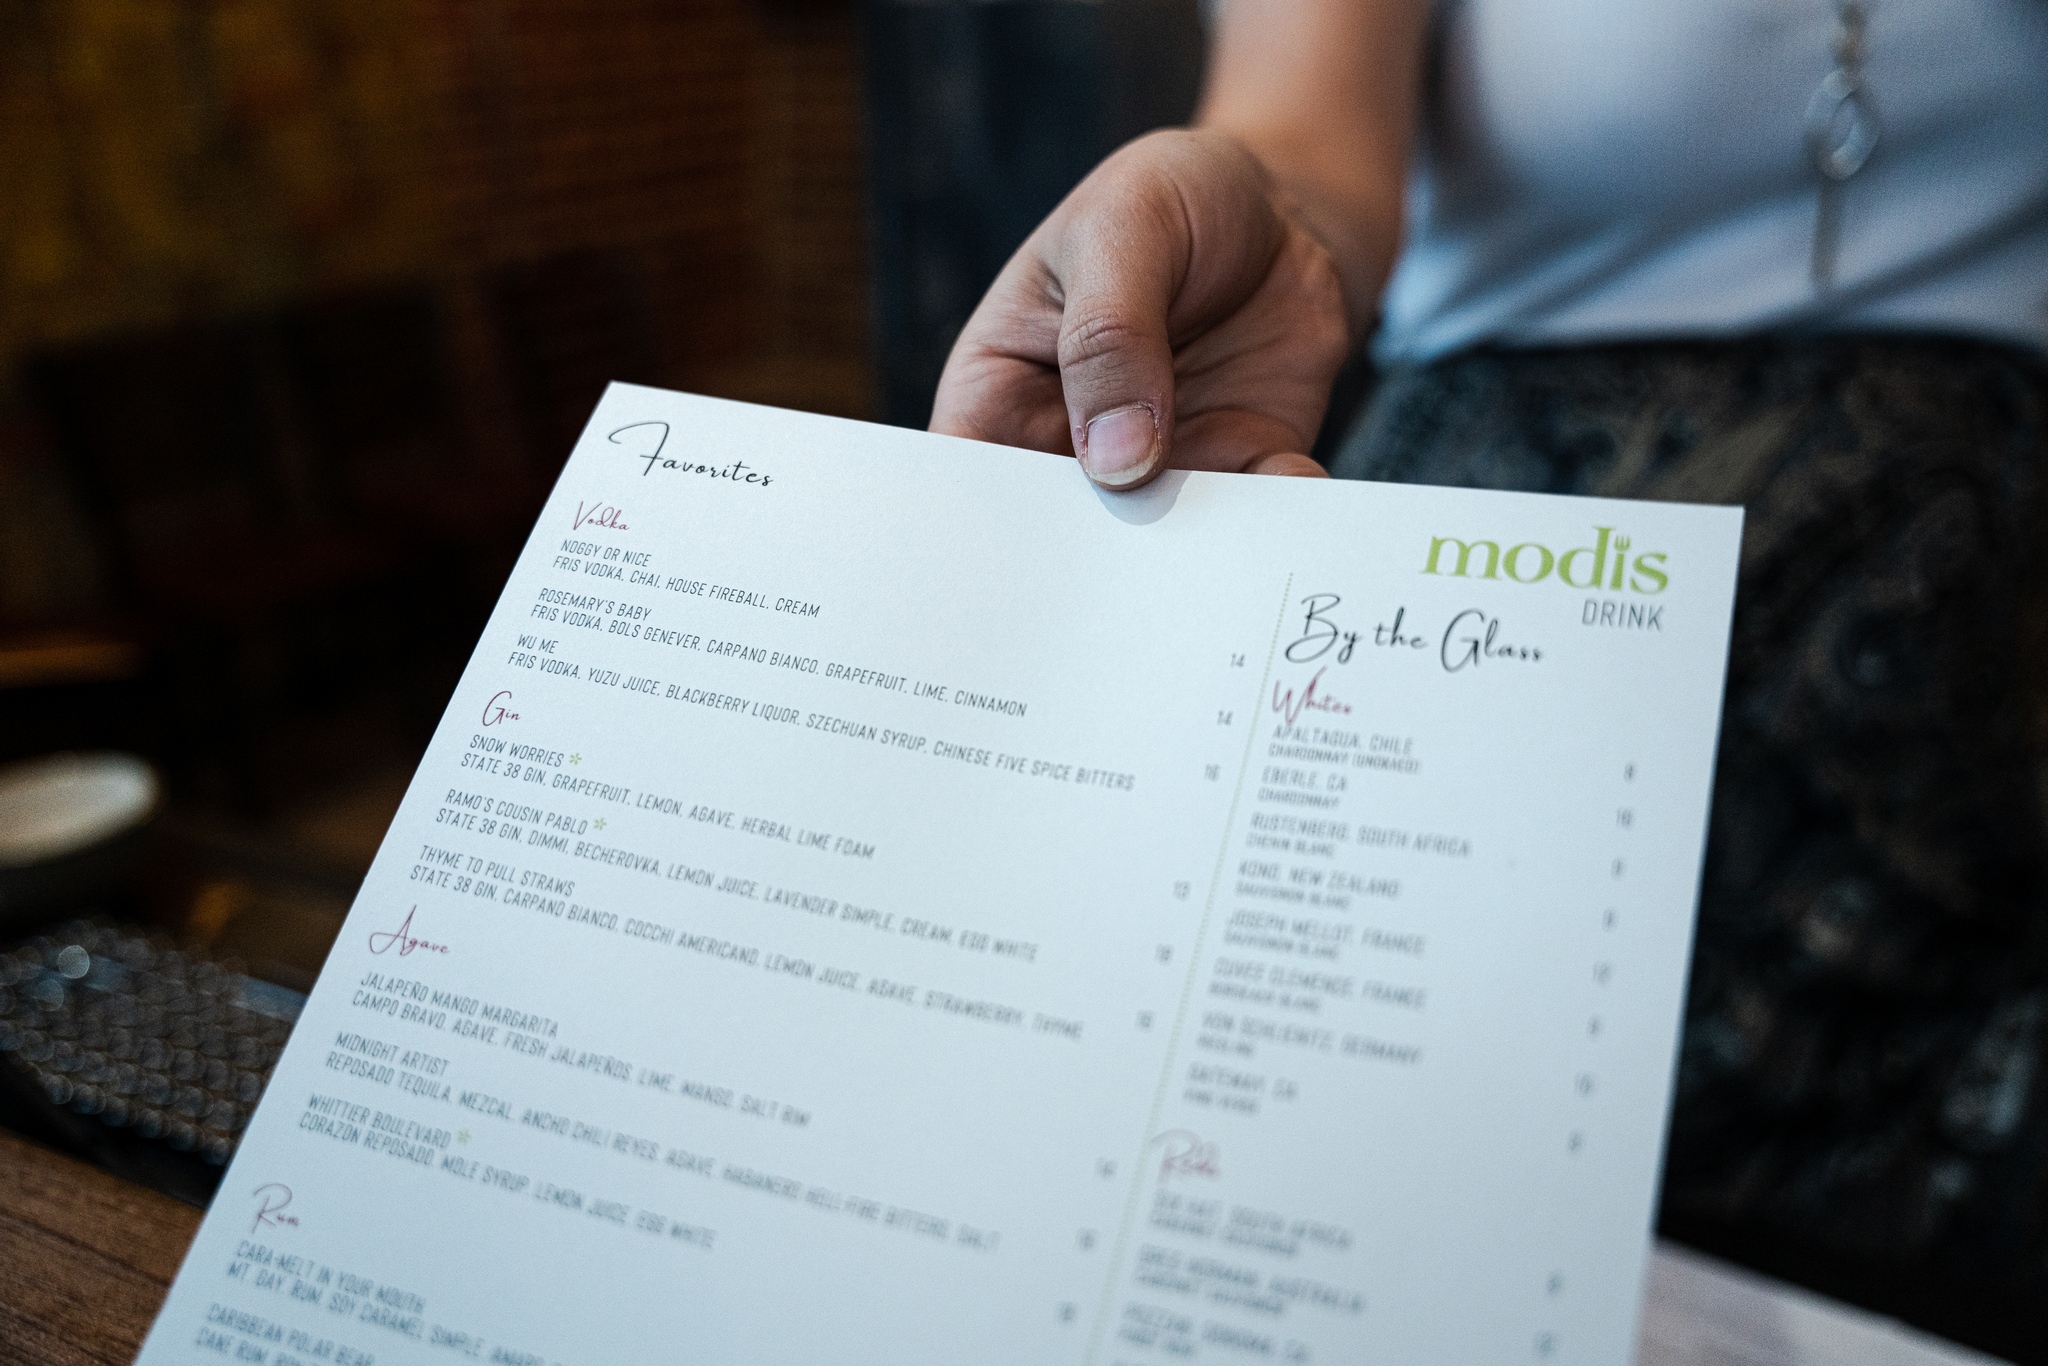 Favorites
Vodka
NOGGY OR NICE
FRIS VODKA, CHAI, HOUSE FIREBALL, CREAM
14
ROSEMARY'S BABY
FRIS VODKA, BOLS GENEVER, CARPANO BIANCO, GRAPEFRUIT, LIME, CINNAMON
14
WU ME
FRIS VODKA, YUZU JUICE, BLACKBERRY LIQUOR, SZECHUAN SYRUP, CHINESE FIVE SPICE BITTERS
16
Gin
SNOW WORRIES *
STATE 38 GIN, GRAPEFRUIT, LEMON, AGAVE, HERBAL LIME FOAM
13
RAMO'S COUSIN PABLO *
STATE 38 GIN, DIMMI, BECHEROVKA, LEMON JUICE, LAVENDER SIMPLE, CREAM, EGG WHITE
THYME TO PULL STRAWS
STATE 38 GIN, CARPANO BIANCO, COCCHI AMERICANO, LEMON JUICE, AGAVE, STRAWBERRY, THYME
Agave
JALAPEÑO MANGO MARGARITA
CAMPO BRAVO, AGAVE, FRESH JALAPEÑOS, LIME, MANGO, SALT RIM
MIDNIGHT ARTIST
REPOSADO TEQUILA, MEZCAL, ANCHO CHILI REYES, AGAVE, HABANERO HELL-FIRE BITTERS, SALT
WHITTIER BOULEVARD *
CORAZON REPOSADO, MOLE SYRUP, LEMON JUICE, EGG WHITE
Rum
CARA-MELT IN YOUR MOUTH
MT. GAY, RUM, SOY CARAMEL SIMPLE, AMARO
CARIBBEAN POLAR BEAR
CANE RUM,
modis
DRINK
By the Glass
Whites
APALTAGUA, CHILE
CHARDONNAY (UNOAKED)
EBERLE, CA
CHARDONNAY
RUSTENBERG, SOUTH AFRICA
CHENIN BLANC
NEW ZEALAND
SAUVIGNON BLANC
JOSEPH MELLOT, FRANCE
SAUVIGNON BLANC
CUVEE CLEMENCE, FRANCE
BORDEAUX BLANC
VON SCHLEINITZ, GERMANY
Reds
SOUTH AFRICA
AUSTRALIA
SONOMA, CA